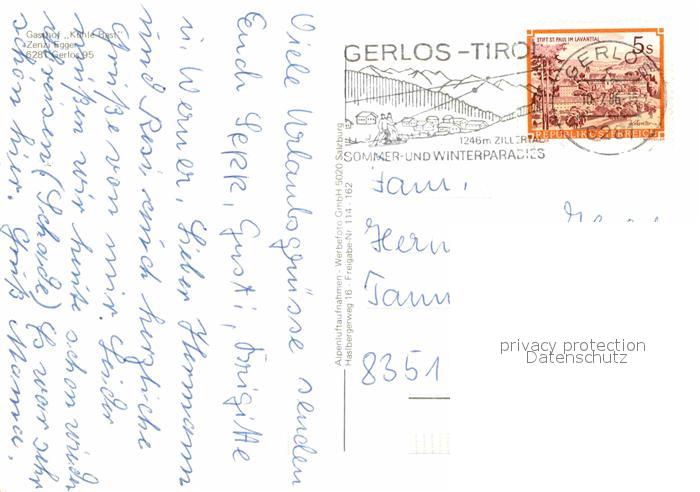 Gasthof „Kühle Rast"
Zenzi Egger
6281 Gerlos 95
Viele Urlaubsgrüsse senden
Euch Sepp, Gusti, Brigitte
u. Werner. Lieber Hermann
und Rosi auch herzliche
Grüße von mir. Leider
müßen wir heute schon wieder
abreisen (Schade) Es war sehr
schön hier. Gruß Mama.
Alpenluftaufnahmen - Werbefoto GmbH 5020 Salzburg
Haslbergerweg 16 - Freigabe-Nr. 114 - 162
GERLOS-TIROL
1246m ZILLERTAL
SOMMER-UND WINTERPARADIES
STIFT ST. PAUL IM LAVANTTAL
5 S
REPUBLIK ÖSTERREICH
GERLOS
Fam.
Herrn
Tann
8351
privacy protection
Datenschutz